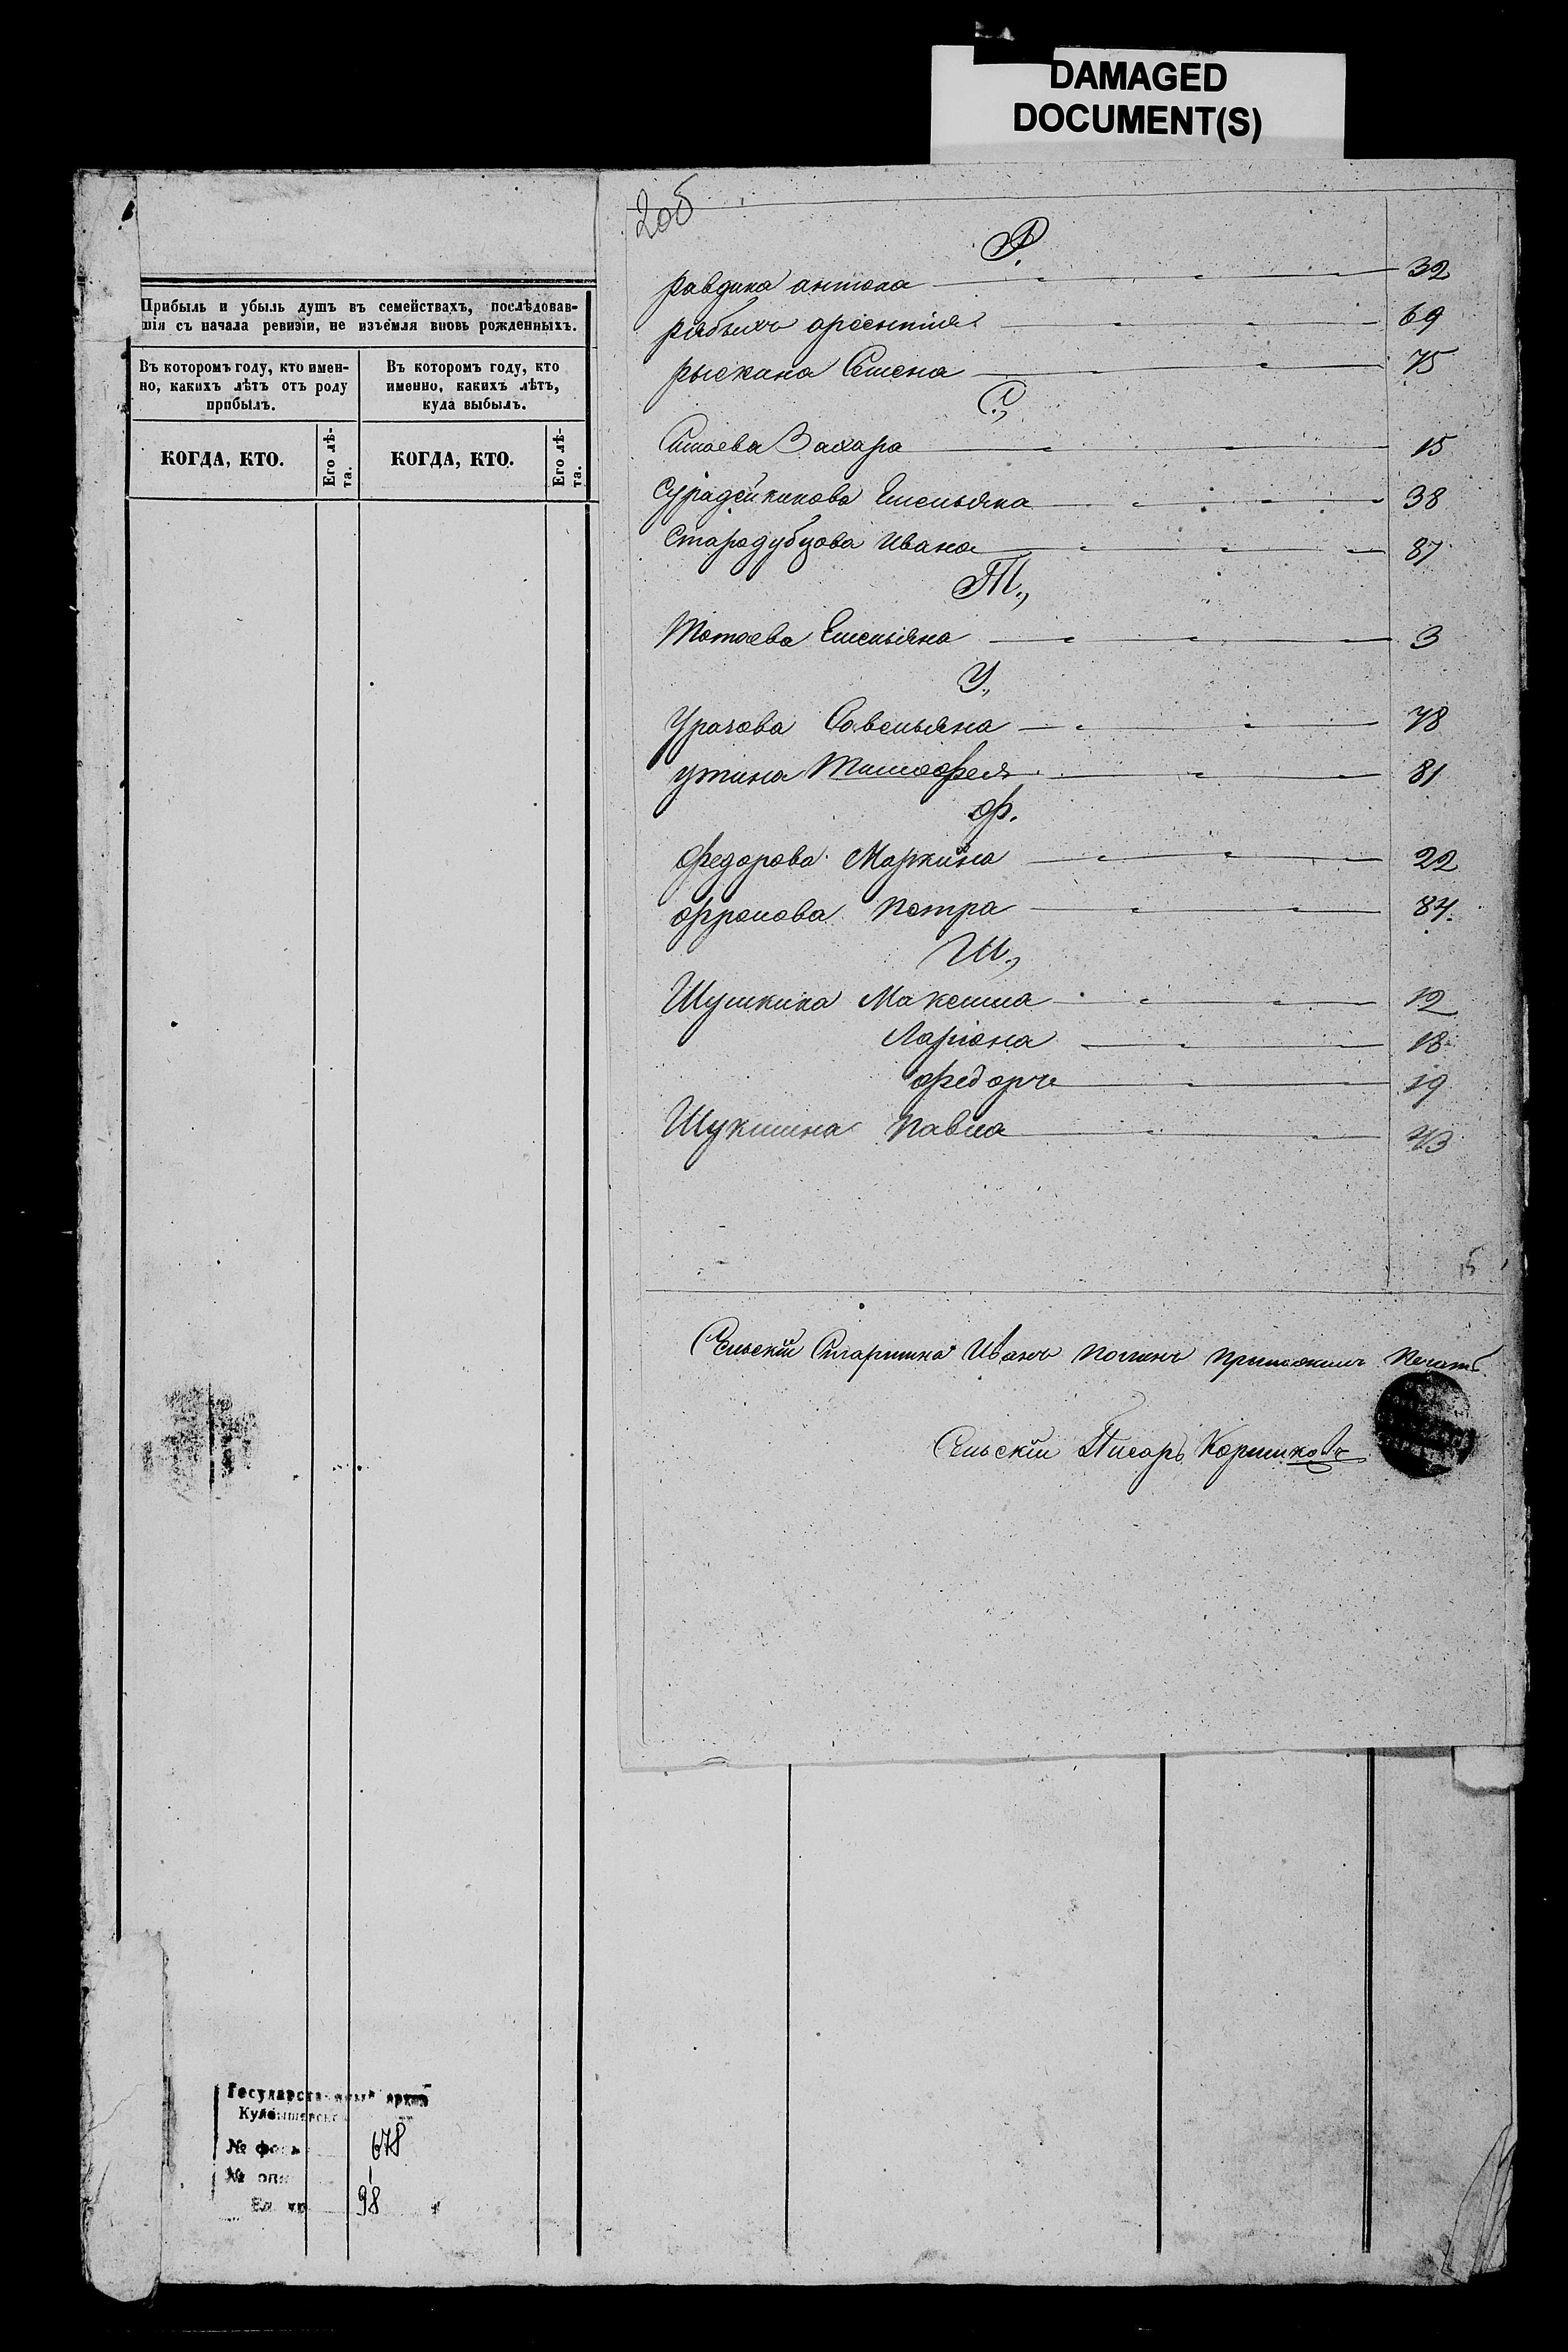 DAMAGED
DOCUMENT(S)
Прибыль и убыль душъ въ семействахъ, послѣдовав-
шія съ начала ревизіи, не изъемля вновь рожденныхъ.
Въ которомъ году, кто имен-
но, какихъ лѣтъ отъ роду
прибылъ.
Въ которомъ году, кто
именно, какихъ лѣтъ,
куда выбылъ.
КОГДА, КТО.
Его лѣ-
та.
КОГДА, КТО.
Его лѣ-
та.
20б
Р.
равдина антона 32
рябыхъ арсентія 69
рыскина Семена 75
С.,
Захара 15
Сурадейкинова Емельяна 38
Стародубцова Ивана 87
Т.,
Тотаева Емельяна 3
У.,
Урачова Савельяна 78
утина Тимофея 81
Ф.
Федорова Маркина 22
фролова Петра 84.
Ш.,
Шушкина Максима 12
Ларіона 18
Федора 19
Шукшина Павла 43
15
Сельскій Старшина Иванъ приложилъ Печать
Сельскій Писарь Коршиковъ
Государственный архив
Куйбышевской
№ фонда 678
№ описи 1
Ед. хр. 98